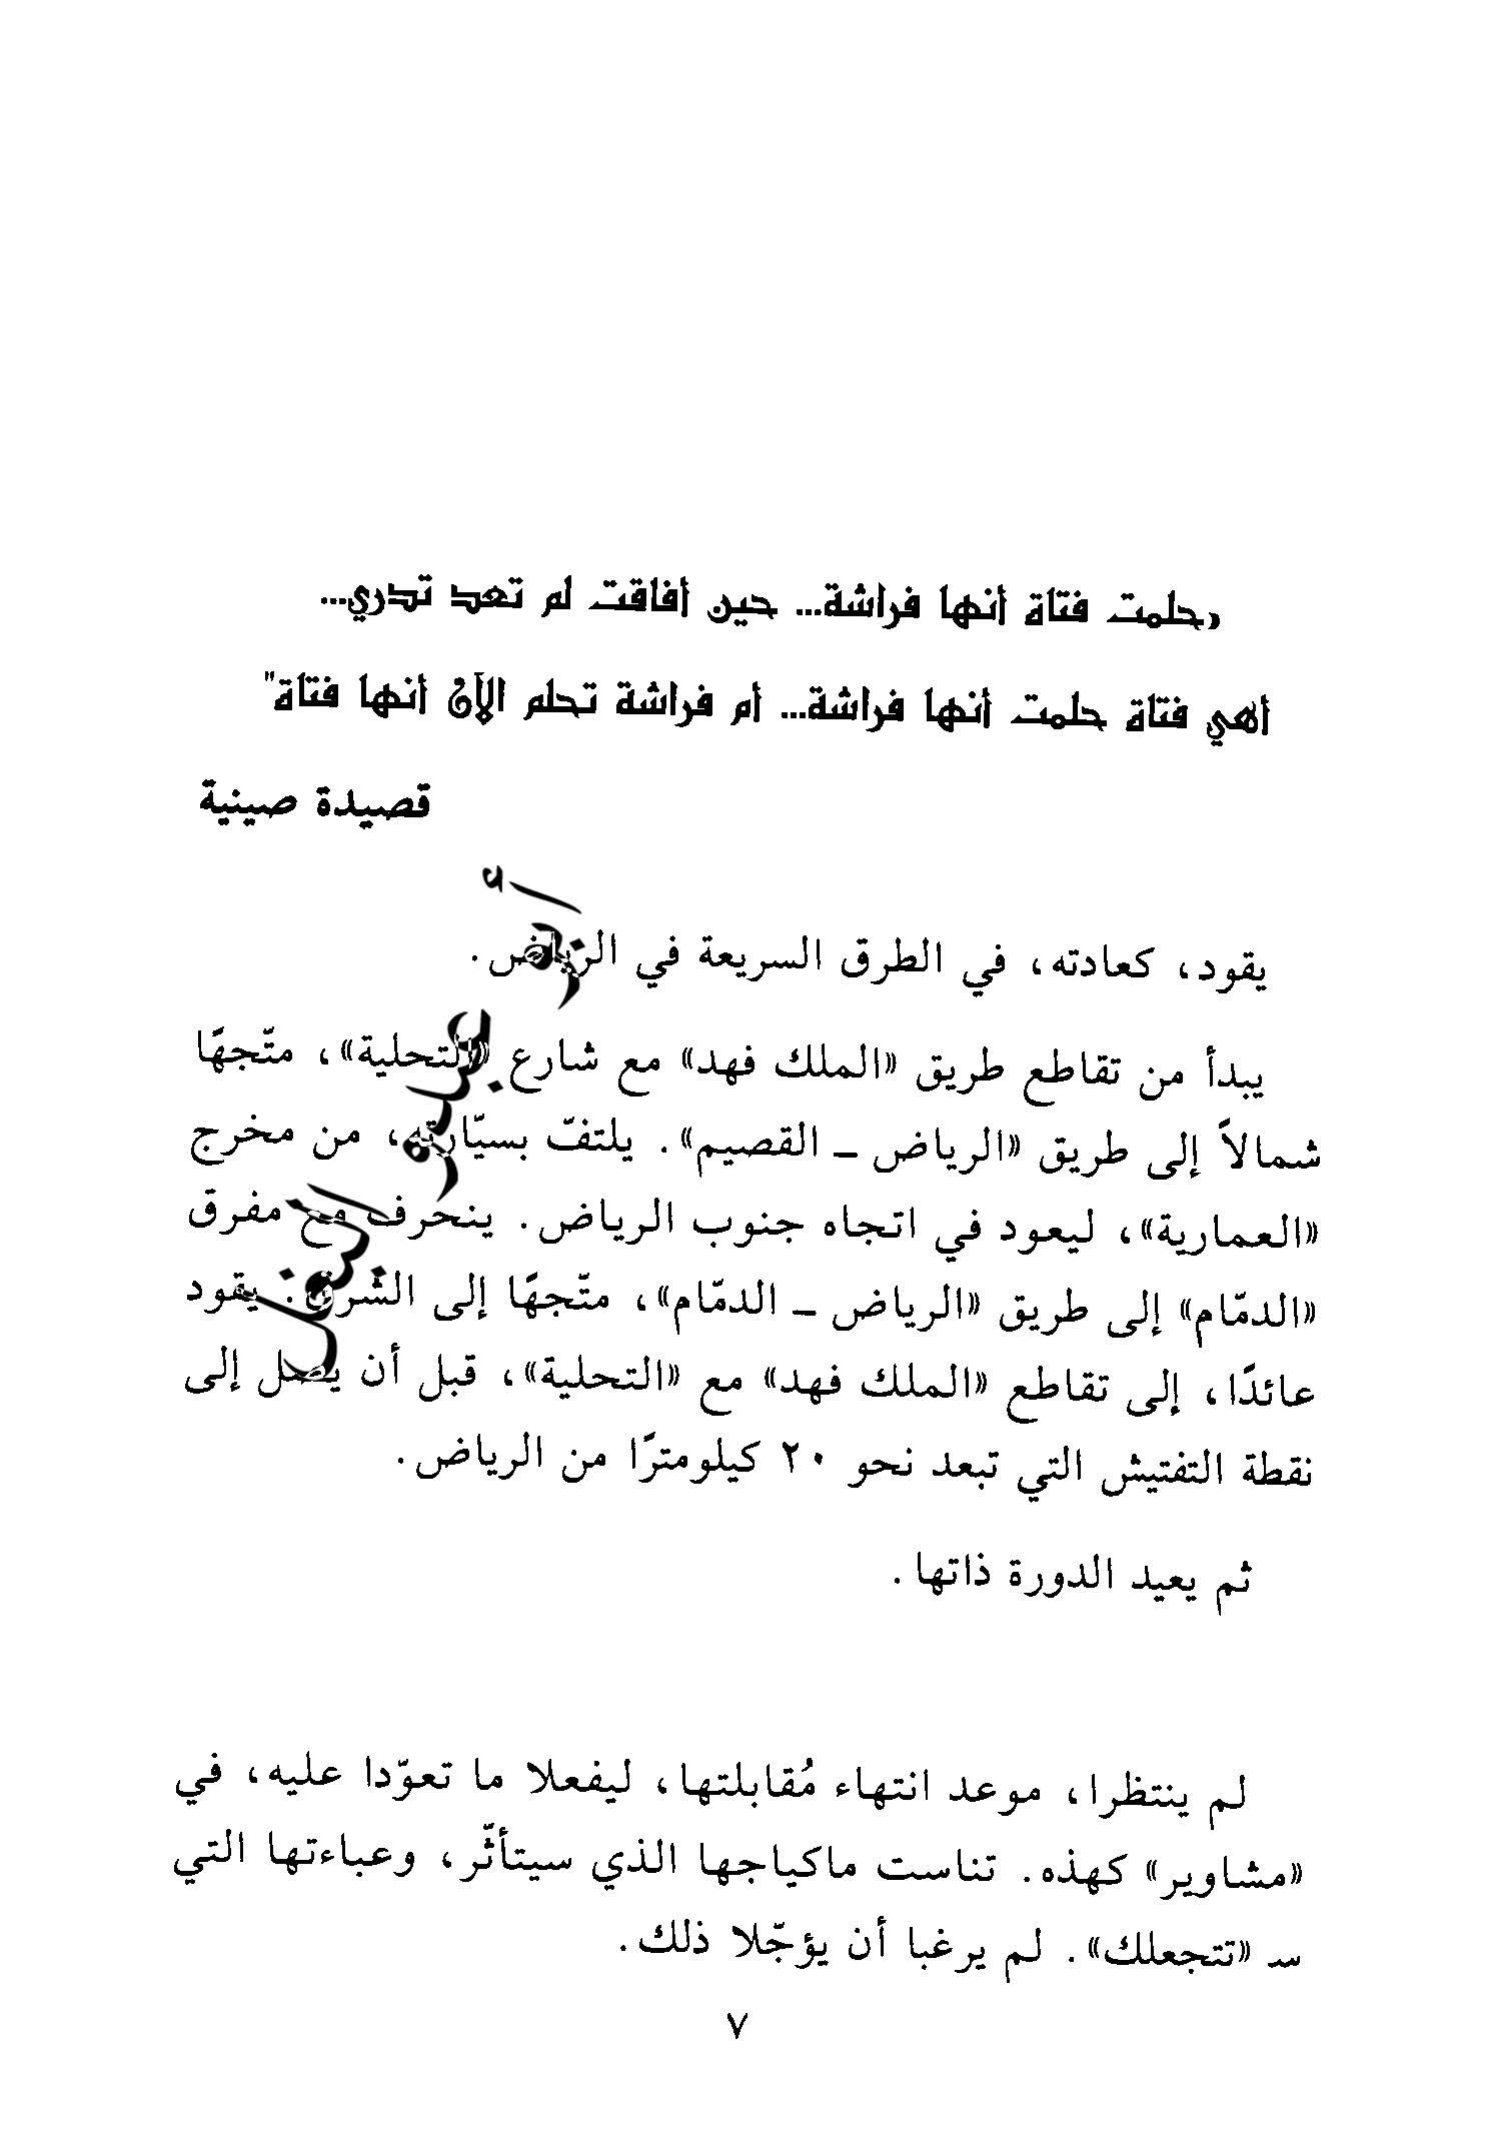 «حلمت فتاة أنها فراشة... حين أفاقت لم تعد تدري...
أهي فتاة حلمت أنها فراشة... أم فراشة تحلم الآن أنها فتاة"
قصيدة صينية
يقود، كعادته، في الطرق السريعة في الرياض.
يبدأ من تقاطع طريق «الملك فهد» مع شارع «التحلية»، متّجهًا
شمالاً إلى طريق «الرياض ـ القصيم». يلتفّ بسيّارته، من مخرج
«العمارية»، ليعود في اتجاه جنوب الرياض. ينحرف مع مفرق
«الدمّام» إلى طريق «الرياض ـ الدمّام»، متّجهًا إلى الشرق. يقود
عائدًا، إلى تقاطع «الملك فهد» مع «التحلية»، قبل أن يصل إلى
نقطة التفتيش التي تبعد نحو ٢٠ كيلومترًا من الرياض.
ثم يعيد الدورة ذاتها.
لم ينتظرا، موعد انتهاء مُقابلتها، ليفعلا ما تعوّدا عليه، في
«مشاوير» كهذه. تناست ماكياجها الذي سيتأثّر، وعباءتها التي
سـ «تتجعلك». لم يرغبا أن يؤجّلا ذلك.
٧